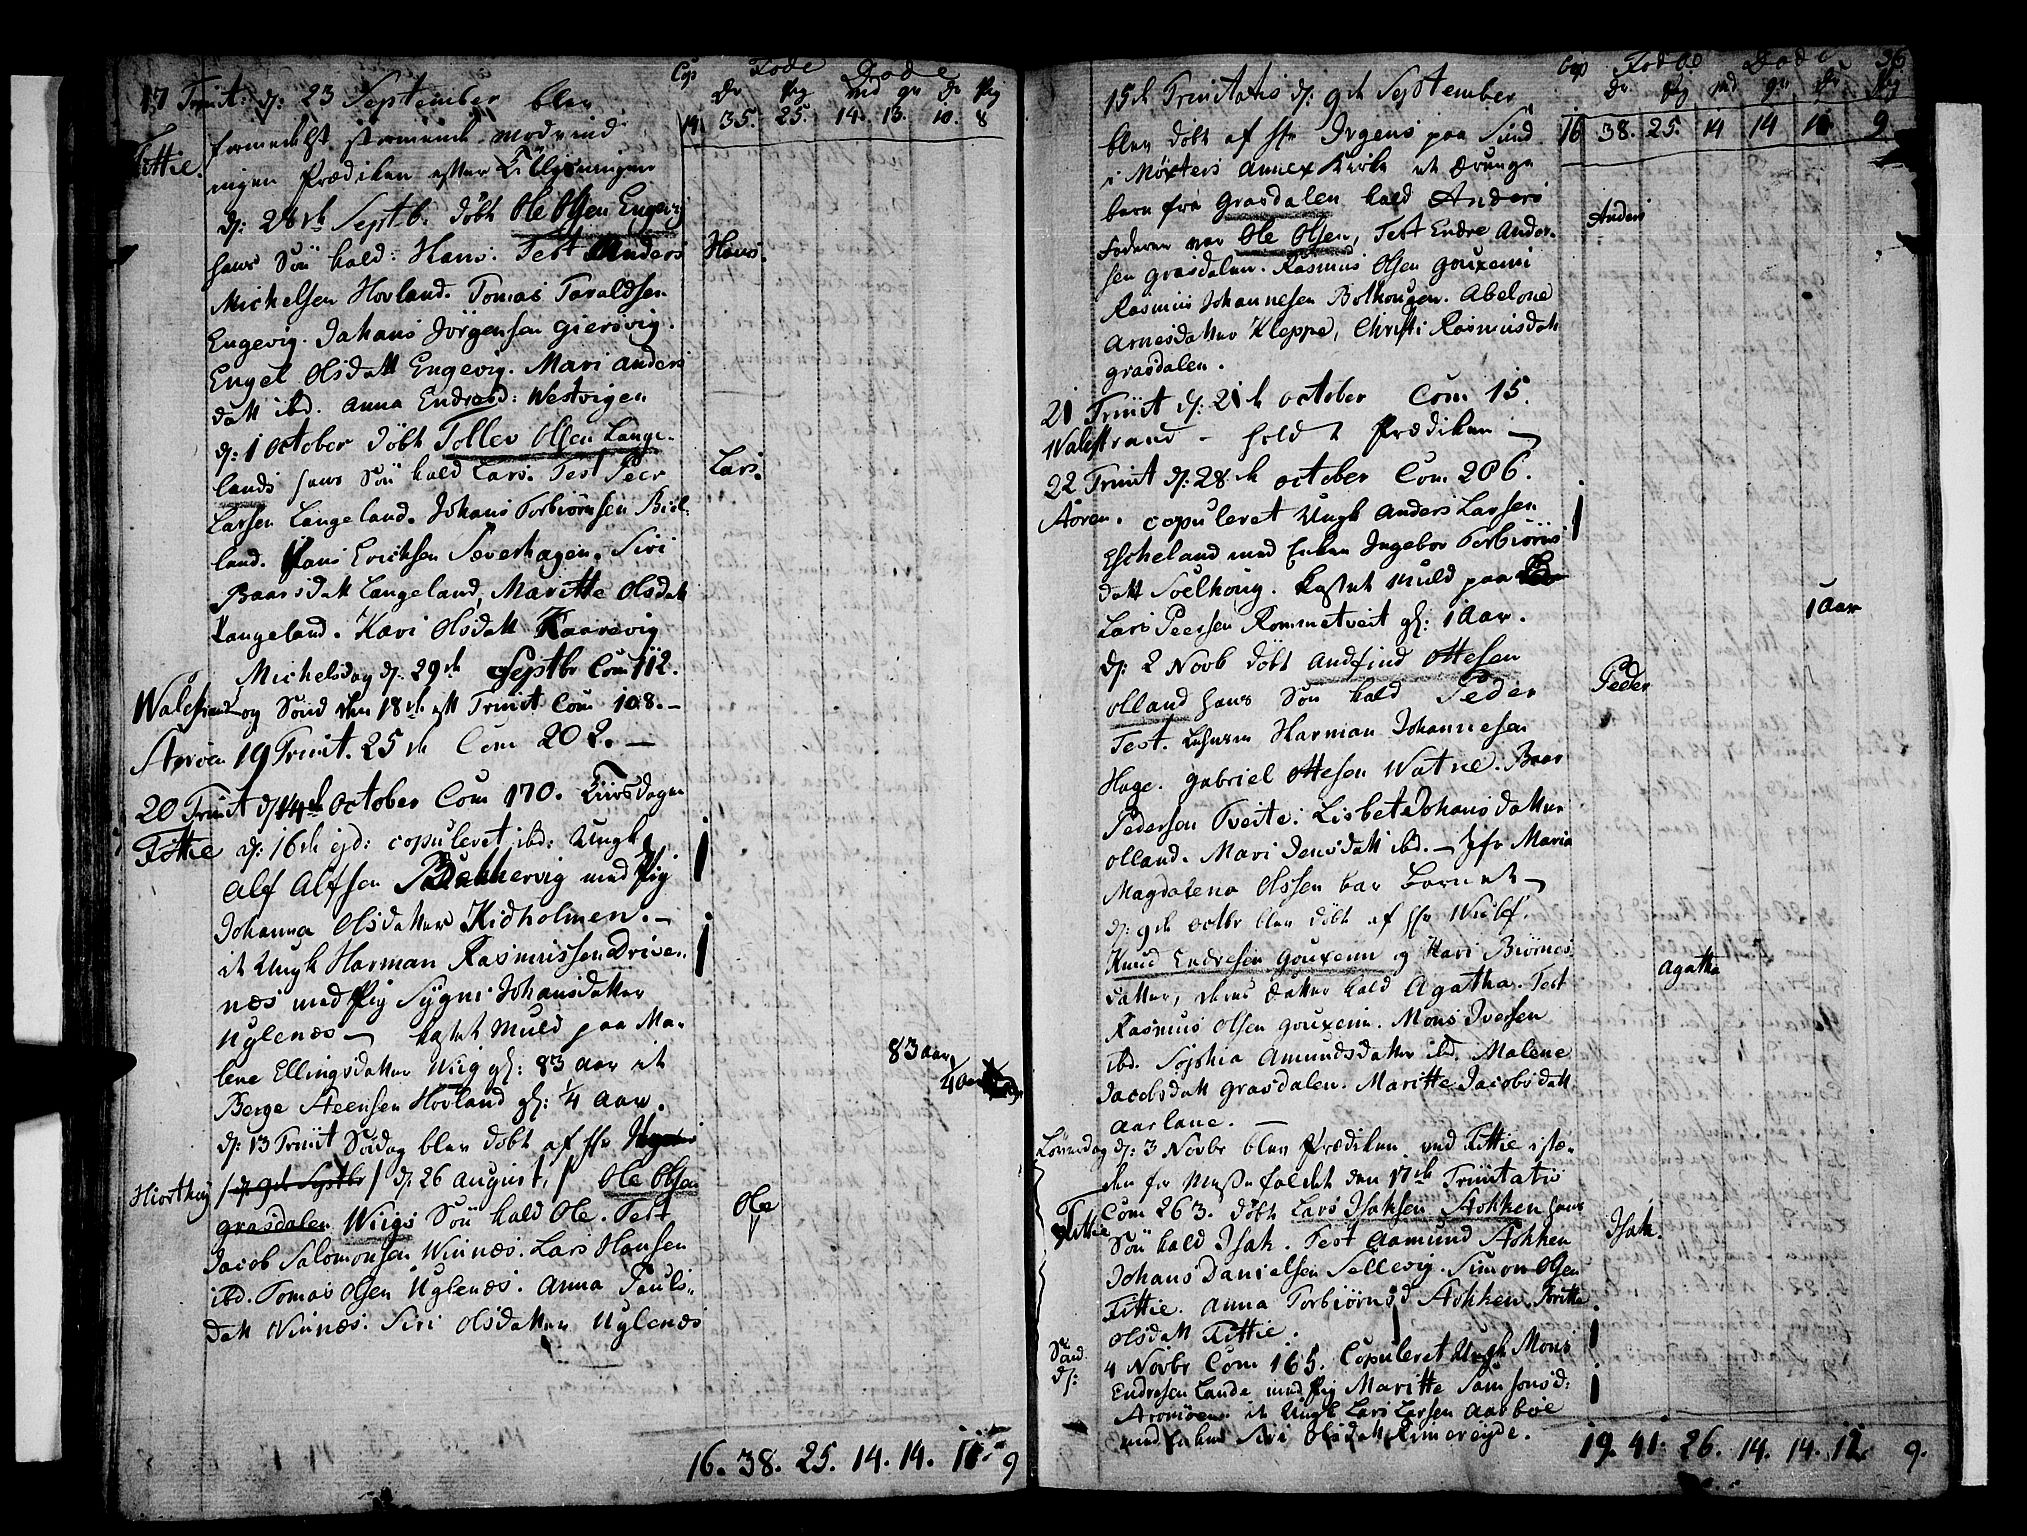 Cop Føde Døde
Dr Pig md qv Dr Pig
14. 35. 25. 14. 13. 10. 8
17 Trinit: d: 23 September blev
formedelst stormende modvind
Fittie. ingen Prædiken efter Tillysningen
d: 28de Septb. døbt Ole Olsen Engevig
hans Søn kald: Hans. Test Anders
Hans.
Michelsen Hovland. Tomas Taraldsen
Engevig. Johans Jørgensen Giersvig.
Engel Olsdatt Engevig. Mari Anders
datt ibd. Anna Endresd: Westvigen
d: 1 October døbt Tollev Olsen Lange-
lands hans Søn kald Lars. Test Peer
Lars.
Larsen Langeland. Johans Torbiørnsen Biel-
land. Hans Erichsen Sæverhagen. Siri
Baarsdatt Langeland, Maritte Olsdatt
Langeland. Kari Olsdatt Kaarevig
Michelsdag d: 29de Septbr Com 112.
Walestrand og Sønd den 18de eft Trinit Com 108. –
Aoroen 19 Trinit. 25de Com 202. –
20 Trinit d: 14de October Com 170. Tiirsdagen
Fittie d: 16de ejd: copuleret ibd: Ungk
Alf Alfsen Bakkervig med Pig
Johanna Olsdatter Kidholmen. –
it Ungk Harman Rasmussen Drive-
næs med Pig Sygni Johansdatter
Uglenæs – kastet Muld paa Ma-
lene Ellingsdatter Wiig gl: 83 aar it
83 aar
Berge Steensen Hovland gl: 1/4 Aar.
1/4 aar
d: 13 Trinit Søndag blev døbt af Hr
Hiorthøy / d: 9de Septbr / d: 26 August, / Ole Olsen
grasdalen Wiigs Søn kald Ole. Test
Ole
Jacob Salomonsen Winnæs. Lars Hansen
ibd. Tomas Olsen Uglenæs. Anna Pauls-
datt Winnæs. Siri Olsdatter Uglenæs
16. 38. 25. 14. 14. 11. 9
Cop Fødde Døde 36
Dr Pig md qv Dr Pig
16 38. 25. 14 14 11 9.
15de Trinitatis d: 9de September
blev døbt af Hr Irgens paa Sund
i Møxters Annex Kirke et Drenge
barn fra Grasdalen kald Anders
Anders
Faderen var Ole Olsen, Test Endre Ander-
sen grasdalen. Rasmus Olsen gouxemi
Rasmus Johannesen Bolhougen. Abelone
Arnesdatter Kleppe, Christi Rasmusdatt
grasdalen.
21 Trinit d: 21de October Com 15.
Walestrand – holdt Prædiken –
22 Trinit d: 28de October Com 206.
Aoren. copuleret Ungk Anders Larsen
Escheland med Enken Ingebor Torbiørns
datt Soelhoug. kastet Muld paa
Lars Peersen Rommetveit gl: 1 Aar.
1 Aar
d: 2 Novb døbt Andfind Ottesen
Olland hans Søn kald Peder
Peder
Test. Harman Johannesen
Hage. Gabriel Ottesen Watne. Baar
Pedersen Tveite. Lisbet Johansdatter
Olland. Mari Jensdatt ibd. – Jfr Maria
Magdalena Olssen bar Barnet –
d: 9de Octbr blev døbt af Hr
Knud Endresen Gouxemi og Kari Biørnes-
datter, deres Datter kald Agatha. Test
Agatha
Rasmus Olsen gouxemi. Mons Iversen
ibd. Sophia Amundsdatter ibd. Malene
Jacobsdatt Grasdalen. Maritte Jacobsdatt
Aarlane. –
Løverdag d: 3 Novbr blev Prædiken ved Fittie istæ-
den for Messefaldet den 17de Trinitatis
Fittie Com 263. døbt Lars Isaksen Stokken hans
Søn kald Isak. Test Aamund Stokken
Isak.
Johans Danielsen Sellevig. Simon Olsen
Fittie. Anna Torbiørnsd Stokken. Britte
Olsdatt Fittie.
Sønd. d: 4 Novbr Com 165. Copuleret Ungk Mons
Endresen Lande med Pig Maritte Samsonsd:
it Ungk Lars Larsen Aarbøe
med Enken Siri Olsdatt Rimereide.
19. 41. 26. 14. 14. 12 9.